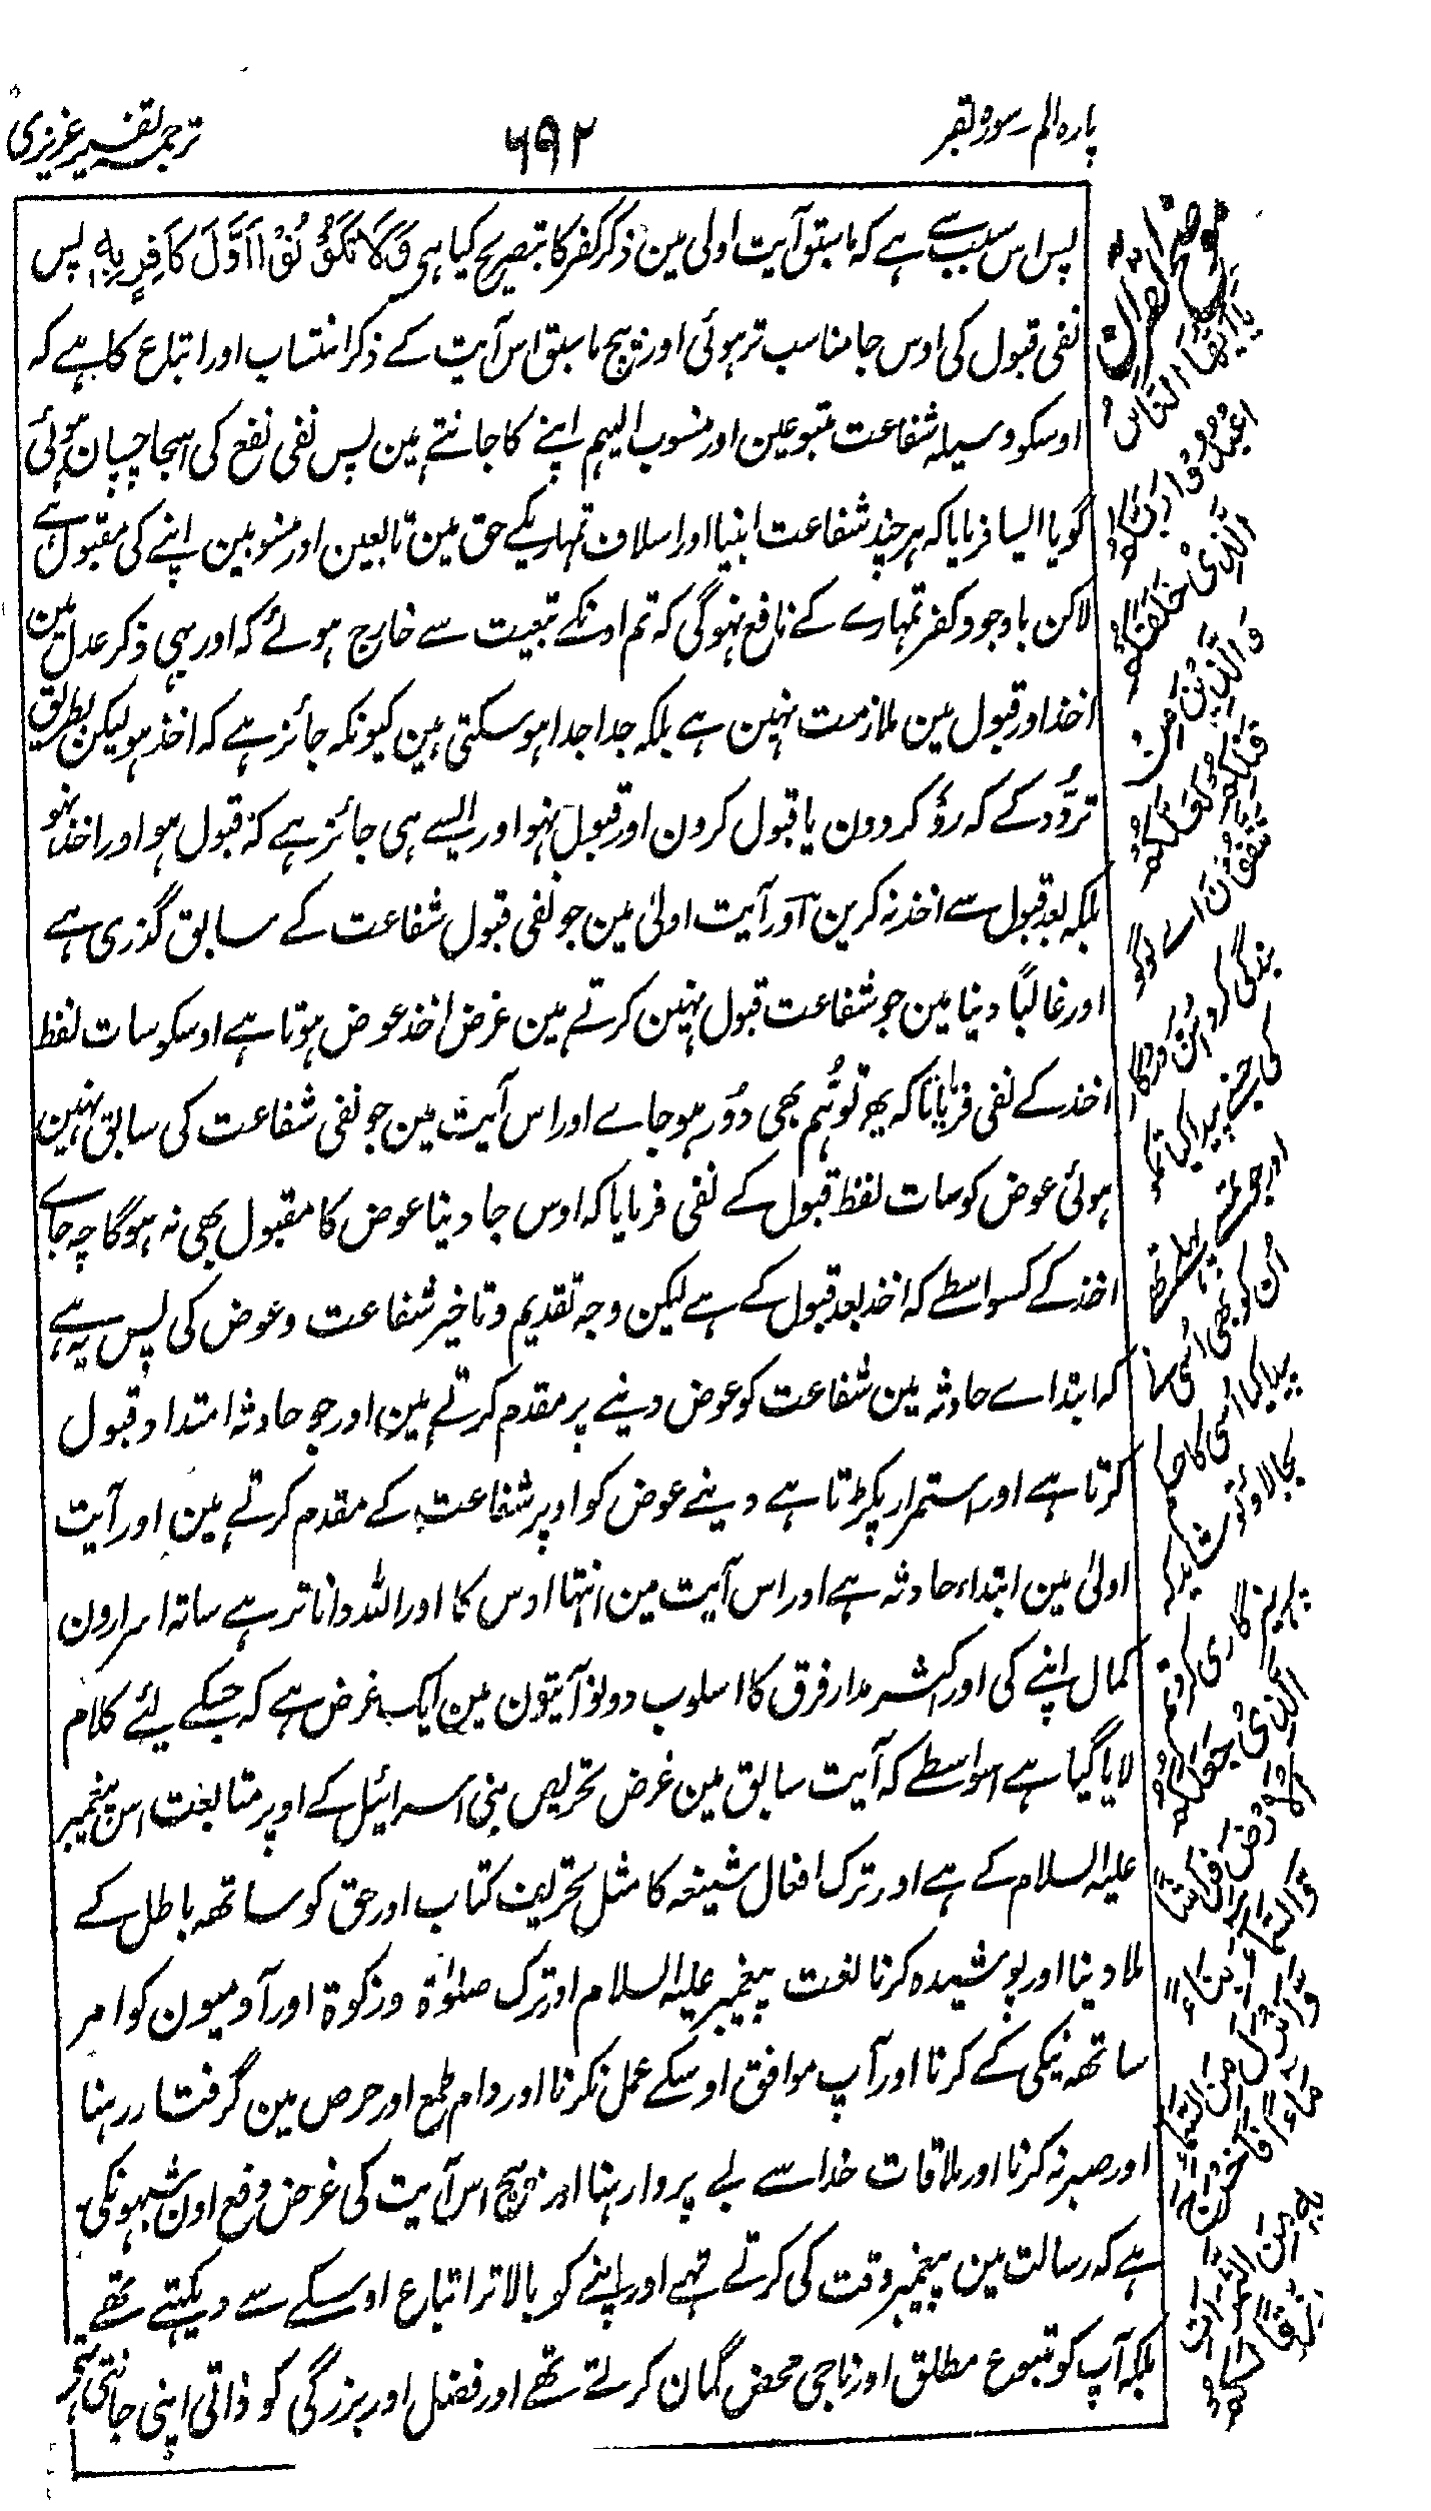 پاره الم سوره بقر
٦٩٢
ترجمہ تفسیر عزیزی
پس اس سبب سے ہے کہ ماسبق آیت اولی مین ذکر کفر کا بتصریح کیا ہی وَلَا تَكُوْنُوْا اَوَّلَ كَافِرٍ بِهٖ پس
نفی قبول کی اوس جا مناسب تر ہوئی اور بیچ ماسبق اس آیت کے ذکر انتساب اور اتباع کا ہے کہ
اوسکو وسیلہ شفاعت متبوعین اور منسوب الیہم اپنے کا جانتے ہین پس نفی نفع کی اسجا چسپان ہوئی
گویا ایسا فرمایا کہ ہر چند شفاعت انبیا اور اسلاف تمہاریکے حق مین تابعین اور منسوبین اپنے کی مقبول ہے
لاکن باوجود کفر تمہارے کے نافع نہوگی کہ تم اونکے تبعیت سے خارج ہوئے کہ اور بیچ ذکر عدل مین
اخذ اور قبول مین ملازمت نہین ہے بلکہ جدا جدا ہو سکتی ہین کیونکہ جائز ہے کہ اخذ ہو لیکن بطریق
تردُّد کے کہ رد کردون یا قبول کرون اور قبول نہو اور ایسے ہی جائز ہے کہ قبول ہو اور اخذ نہو
بلکہ بعد قبول سے اخذ نہ کرین اور آیت اولیٰ مین جو نفی قبول شفاعت کے سابق گذری ہے
اور غالبًا دنیا مین جو شفاعت قبول نہین کرتے ہین غرض اخذ عوض ہوتا ہے اوسکو سات لفظ
اخذ کے نفی فرمایا تاکہ یہ توہُّم بھی دُور ہو جاے اور اس آیت مین جو نفی شفاعت کی سابق نہین
ہوئی عوض کو سات لفظ قبول کے نفی فرمایا کہ اوس جا دینا عوض کا مقبول بھی نہ ہوگا چہ جاے
اخذ کے کسواسطے کہ اخذ بعد قبول کے ہے لیکن وجہ تقدیم و تاخیر شفاعت و عوض کی پس یہ ہے
کہ ابتداے حادثہ مین شفاعت کو عوض دینے پر مقدم کرتے ہین اور جو حادثہ امتداد قبول
کرتا ہے اور استمرار پکڑتا ہے دینے عوض کو اوپر شفاعت کے مقدم کرتے ہین اور آیت
اولیٰ مین ابتداء حادثہ ہے اور اس آیت مین انتہا اوس کا اور اللہ دانا تر ہے ساتہ اسرارون
کمال اپنے کی اور اکثر مدار فرق کا اسلوب دونو آیتون مین ایک غرض ہے کہ جسکے لئے کلام
لایا گیا ہے اسواسطے کہ آیت سابق مین غرض تحریص بنی اسرائیل کے اوپر متابعت اس پیغمبر
علیہ السلام کے ہے اور ترک افعال شنیعہ کا مثل تحریف کتاب اور حق کو ساتھہ باطل کے
ملا دینا اور پوشیدہ کرنا نعت پیغمبر علیہ السلام اور ترک صلوٰۃ و زکوۃ اور آدمیون کو امر
ساتھہ نیکی کے کرنا اور آپ موافق اوسکے عمل نکرنا اور دام طمع اور حرص مین گرفتار رہنا
اور صبر نہ کرنا اور ملاقات خدا سے بے پروا رہنا اور بیچ اس آیت کی غرض دفع اون شبہونکی
ہے کہ رسالت مین پیغمبر وقت کی کرتے تھے اور اپنے کو بالاتر اتباع اوسکے سے دیکہتے تھے
بلکہ آپ کو متبوع مطلق اور ناجی محض گمان کرتے تھے اور فضل اور بزرگی کو ذاتی اپنی جانتی تہی
موضح القرآن
يٰاَيُّهَا النَّاسُ
اعْبُدُوْا رَبَّكُمُ
الَّذِيْ خَلَقَكُمْ
وَالَّذِيْنَ مِنْ
قَبْلِكُمْ لَعَلَّكُمْ
تَتَّقُوْنَ اے لوگو
بندگی کرو اپنے رب کی
جسنے پیدا کیا تمکو
اُن کو بھی اُسی نے
پیدا کیا اُسی کا حکم
بجا لاؤ
پرہیزگاری کرو تم
الَّذِيْ جَعَلَ لَكُمُ
الْاَرْضَ فِرَاشًا
وَّالسَّمَآءَ بِنَآءً
وَّاَنْزَلَ مِنَ السَّمَآءِ
مَآءً فَاَخْرَجَ
بِهٖ مِنَ الثَّمَرٰتِ
رِزْقًا لَّكُمْ